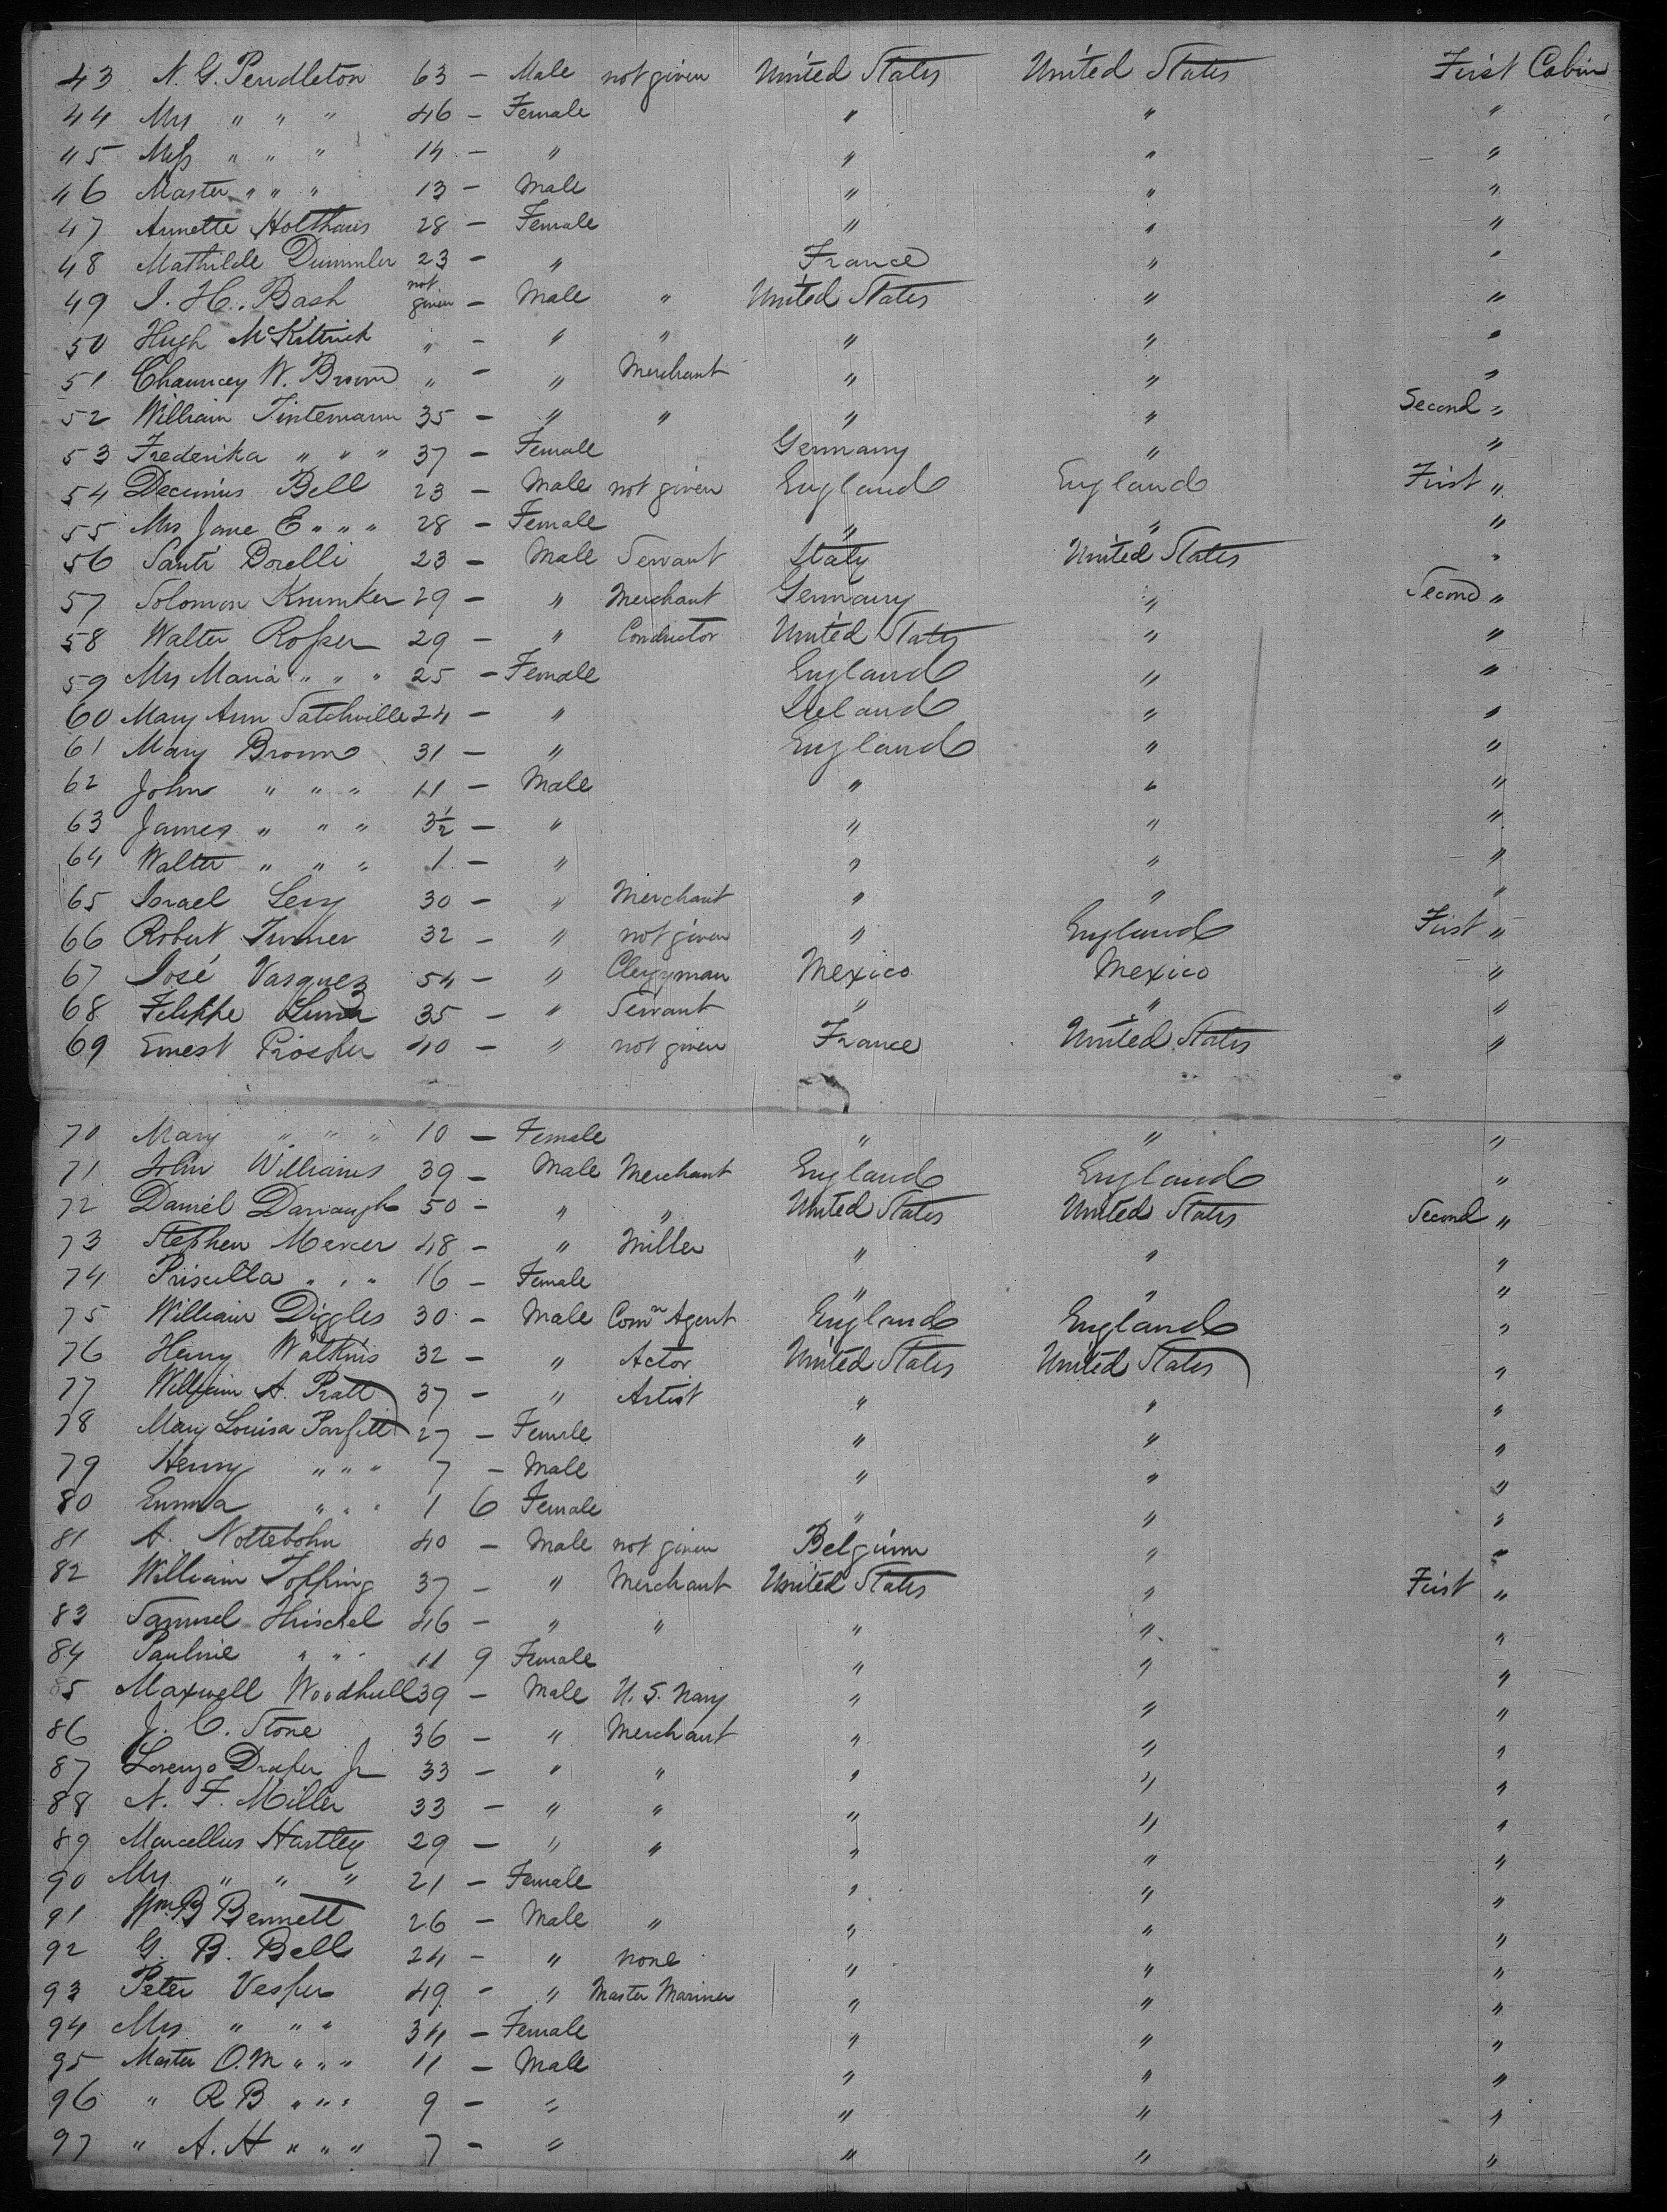 43 N. G. Pendleton 63 - Male not given United States United States First Cabin
44 Mrs " " " 46 - Female " " "
45 Miss " " " 14 - " " " "
46 Master " " " 13 - Male " " "
47 Annette Holthaus 28 - Female " " "
48 Mathilde Dummler 23 - " France " "
49 I. H. Bash not given - Male " United States " "
50 Hugh McKittrick " - " " " " "
51 Chauncey W. Brown " - " Merchant " " "
52 William Tintemann 35 - " " " " Second "
53 Frederika " " " 37 - Female Germany " "
54 Decimus Bell 23 - Male not given England England First "
55 Mrs Jane E " " " 28 - Female " " "
56 Santi Borelli 23 - Male Servant Italy United States "
57 Solomon Krumker 29 - " Merchant Germany " Second "
58 Walter Rosser 29 - " Conductor United States " "
59 Mrs Maria " " " 25 - Female England " "
60 Mary Ann Satchville 24 - " Ireland " "
61 Mary Brown 31 - " England " "
62 John " " " 11 - Male " " "
63 James " " " 3½ - " " " "
64 Walter " " " 1 - " " " "
65 Israel Levy 30 - " Merchant " " "
66 Robert Turner 32 - " not given " England First "
67 José Vasquez 54 - " Clergyman Mexico Mexico "
68 Felippe Luna 35 - " Servant " " "
69 Ernest Prosper 40 - " not given France United States "
70 Mary " " " 10 - Female " " "
71 John Williams 39 - Male Merchant England England "
72 Daniel Darraugh 50 - " " United States United States Second "
73 Stephen Mercer 48 - " Miller " " "
74 Priscilla " " " 16 - Female " " "
75 William Diggles 30 - Male Comn Agent England England "
76 Henry Watkins 32 - " Actor United States United States "
77 William A. Pratt 37 - " Artist " " "
78 Mary Louisa Parfitt 27 - Female " " "
79 Henry " " " 7 - Male " " "
80 Emma " " " 1 6 Female " " "
81 A. Nottebohn 40 - Male not given Belgium " "
82 William Topping 37 - " Merchant United States " First "
83 Samuel Hirschel 46 - " " " " "
84 Pauline " " " 11 9 Female " " "
85 Maxwell Woodhull 39 - Male U. S. Navy " " "
86 J. C. Stone 36 - " Merchant " " "
87 Lorenzo Draper Jr 33 - " " " " "
88 N. F. Miller 33 - " " " " "
89 Marcellus Hartley 29 - " " " " "
90 Mrs " " " 21 - Female " " "
91 Wm B Bennett 26 - Male " " " "
92 G. B. Bell 24 - " none " " "
93 Peter Vesper 49 - " Master Mariner " " "
94 Mrs " " " 34 - Female " " "
95 Master O. M " " " 11 - Male " " "
96 " R B " " " 9 - " " " "
97 " A. H " " " 7 - " " " "